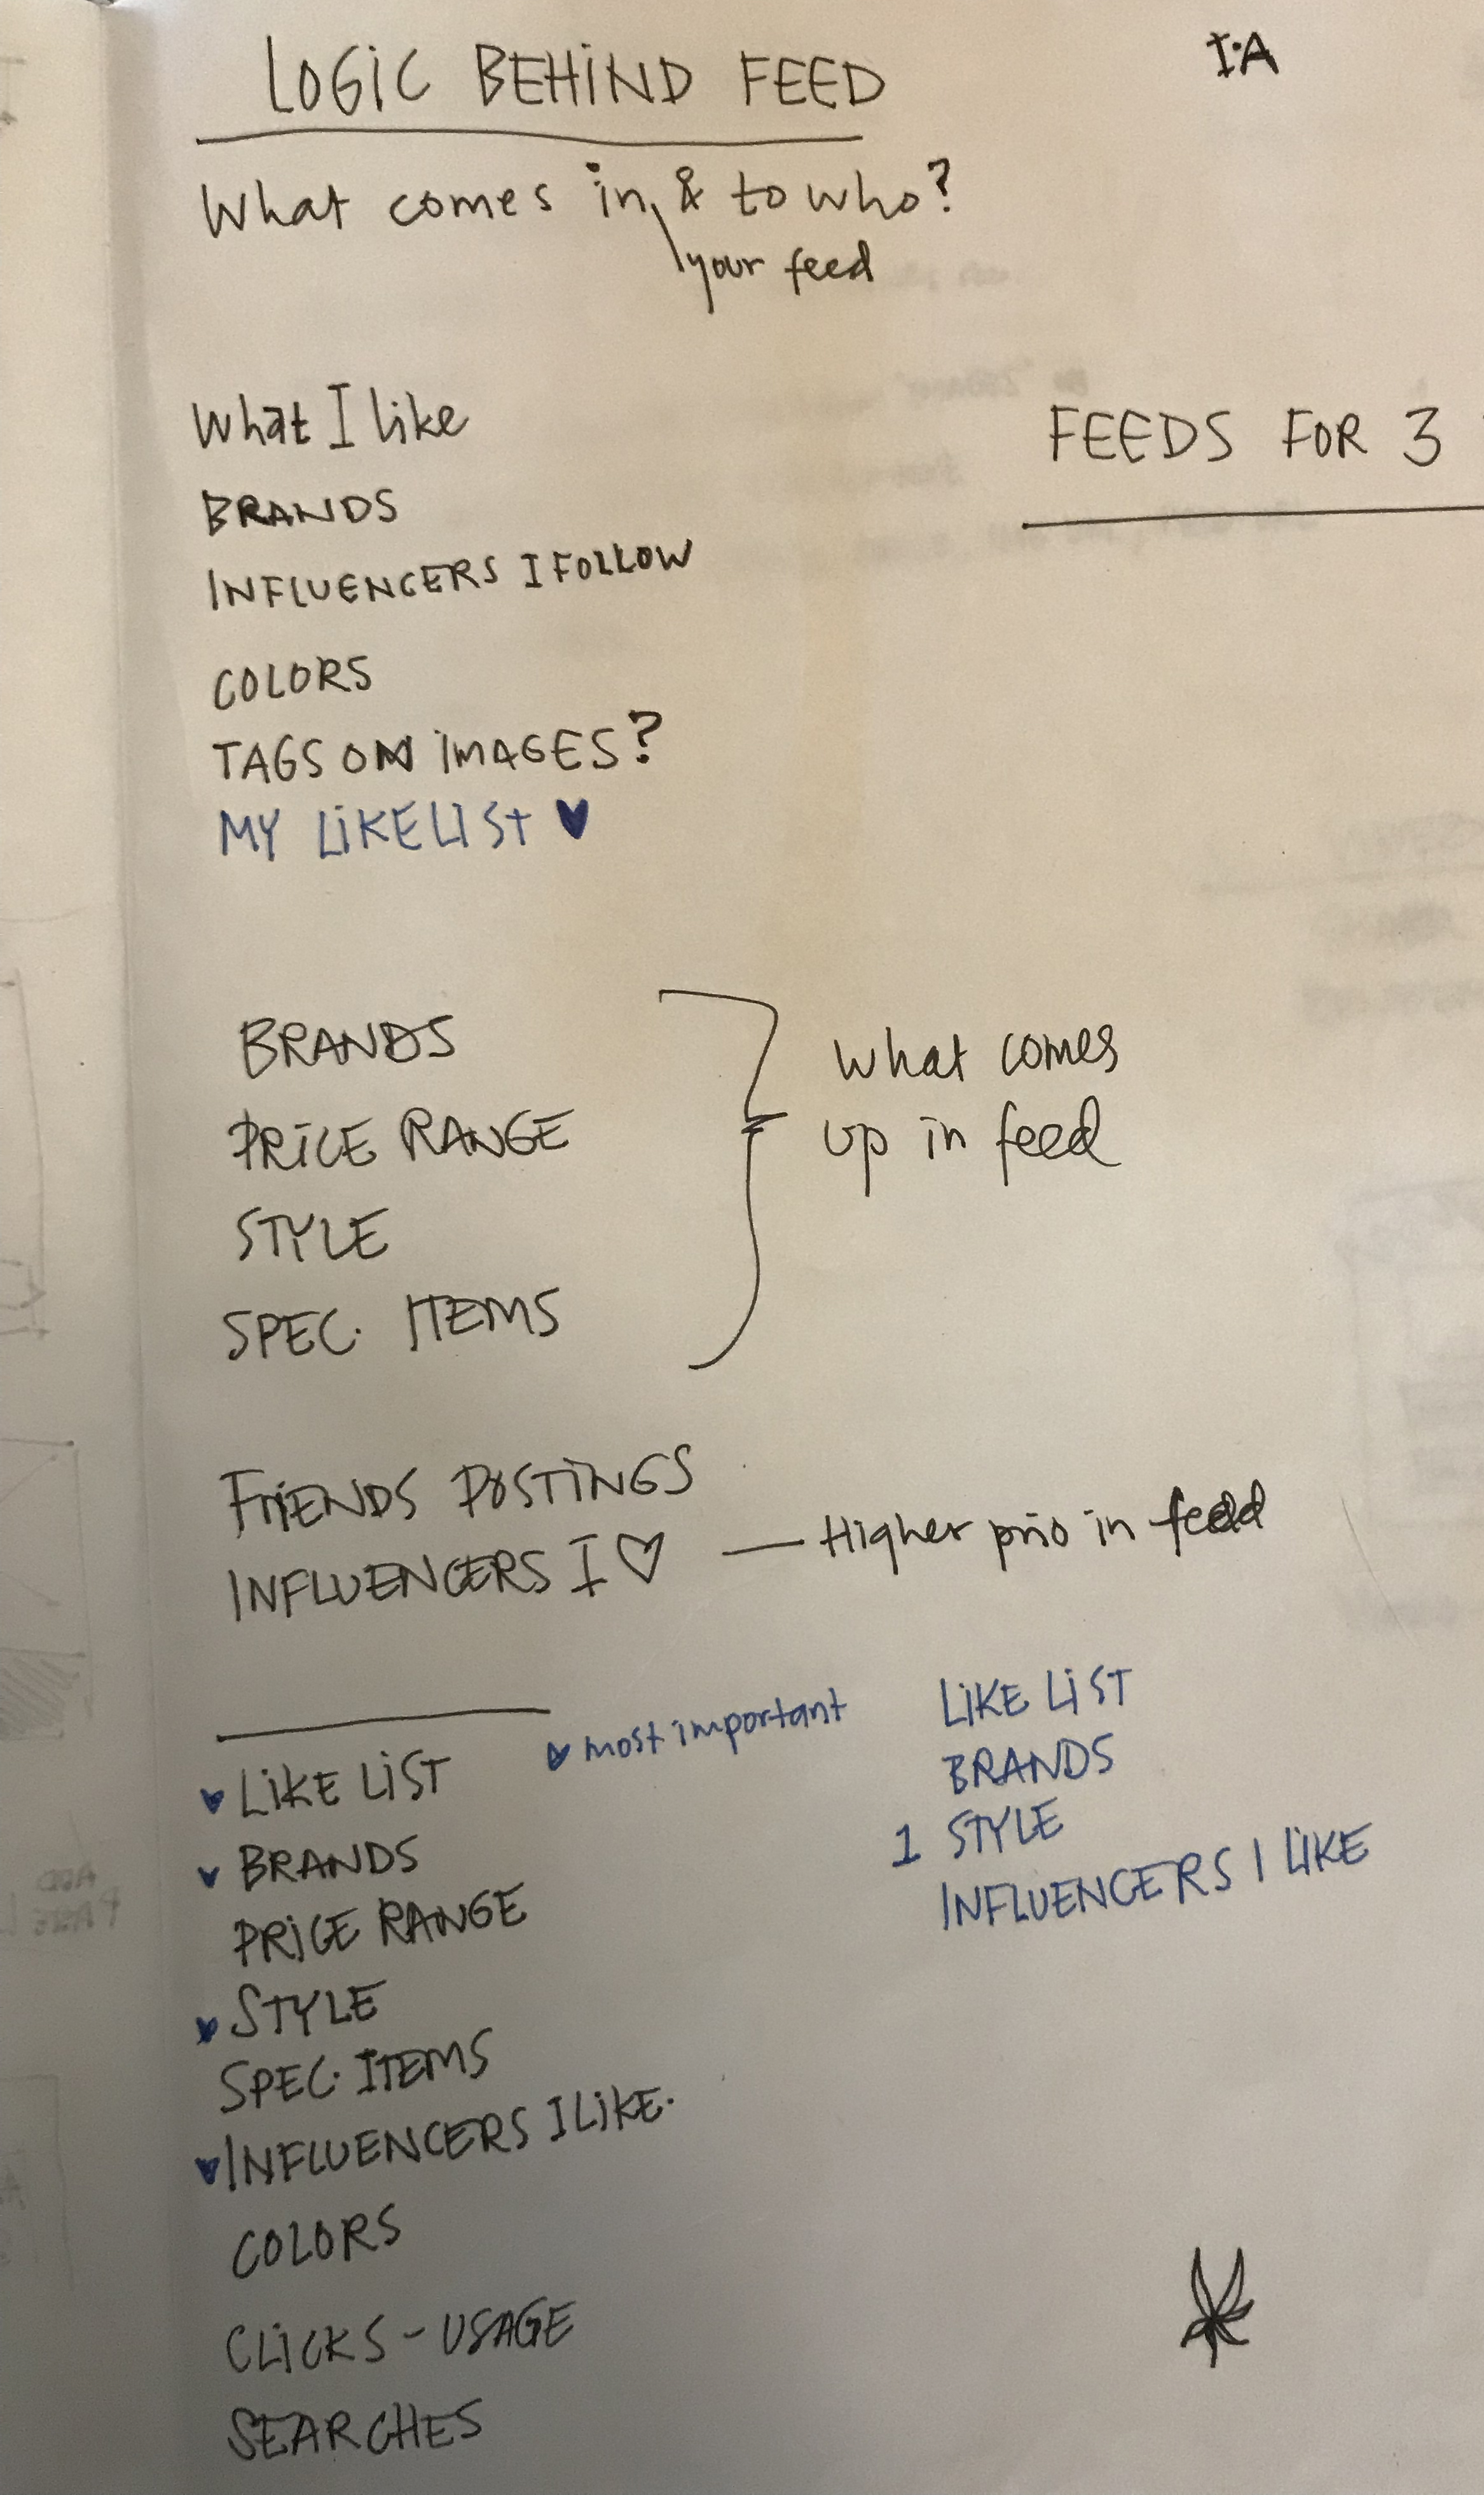 LOGIC BEHIND FEED
I.A
What comes in & to who?
your feed
What I like
BRANDS
INFLUENCERS I FOLLOW
COLORS
TAGS ON IMAGES?
MY LIKELIST ♥
FEEDS FOR 3
BRANDS
PRICE RANGE
STYLE
SPEC. ITEMS
What comes
up in feed
FRIENDS POSTINGS
INFLUENCERS I ♡ — Higher prio in feed
♥ most important
♥ LIKE LIST
♥ BRANDS
PRICE RANGE
♥ STYLE
SPEC. ITEMS
♥ INFLUENCERS I LIKE.
COLORS
CLICKS - USAGE
SEARCHES
LIKE LIST
BRANDS
1 STYLE
INFLUENCERS I LIKE